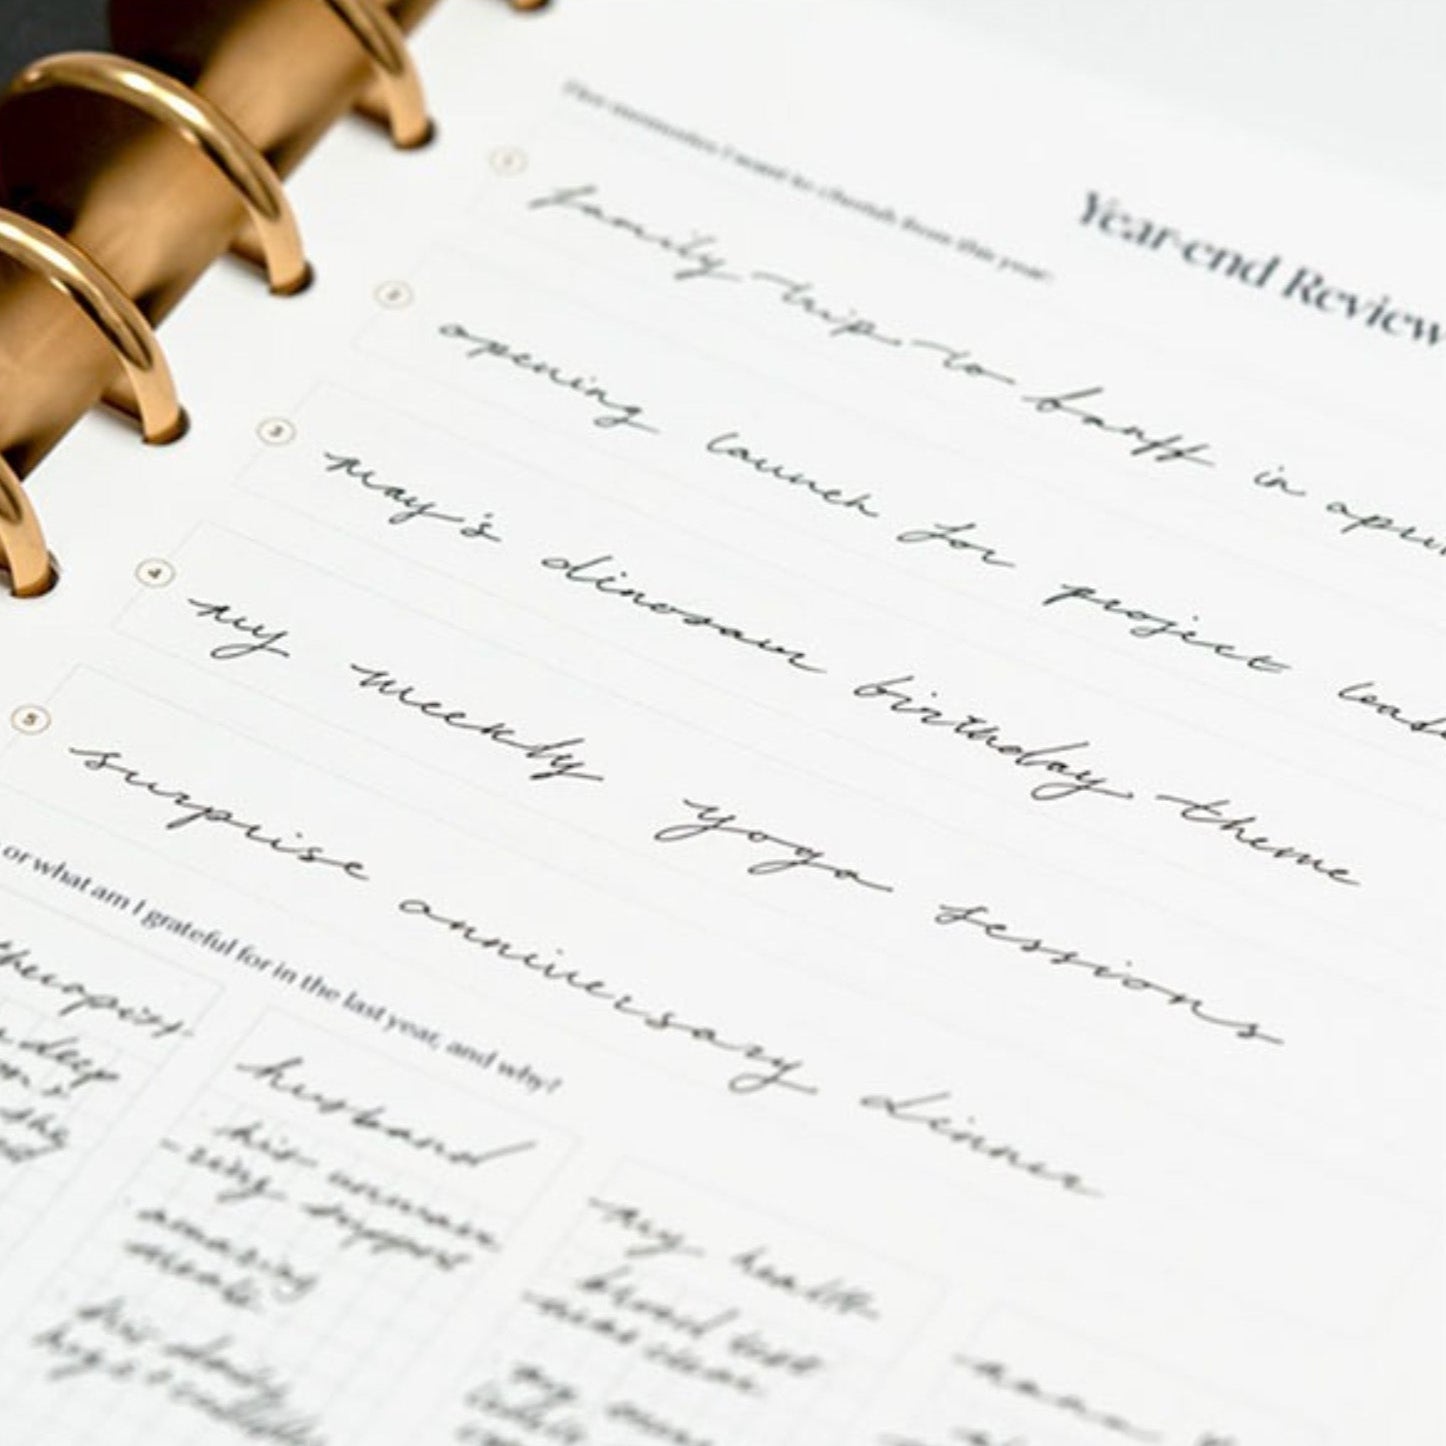 Year-end Review
Five memories I want to cherish from this year:
1
family trip to banff in april
2
opening launch for project
3
may's dinosaur birthday theme
4
my weekly yoga sessions
5
surprise anniversary dinner
or what am I grateful for in the last year, and why?
therapist
deep
the
husband
his unwave
-ring support
amazing
meals
his daily
hugs +
my health
blood test
was clear
my